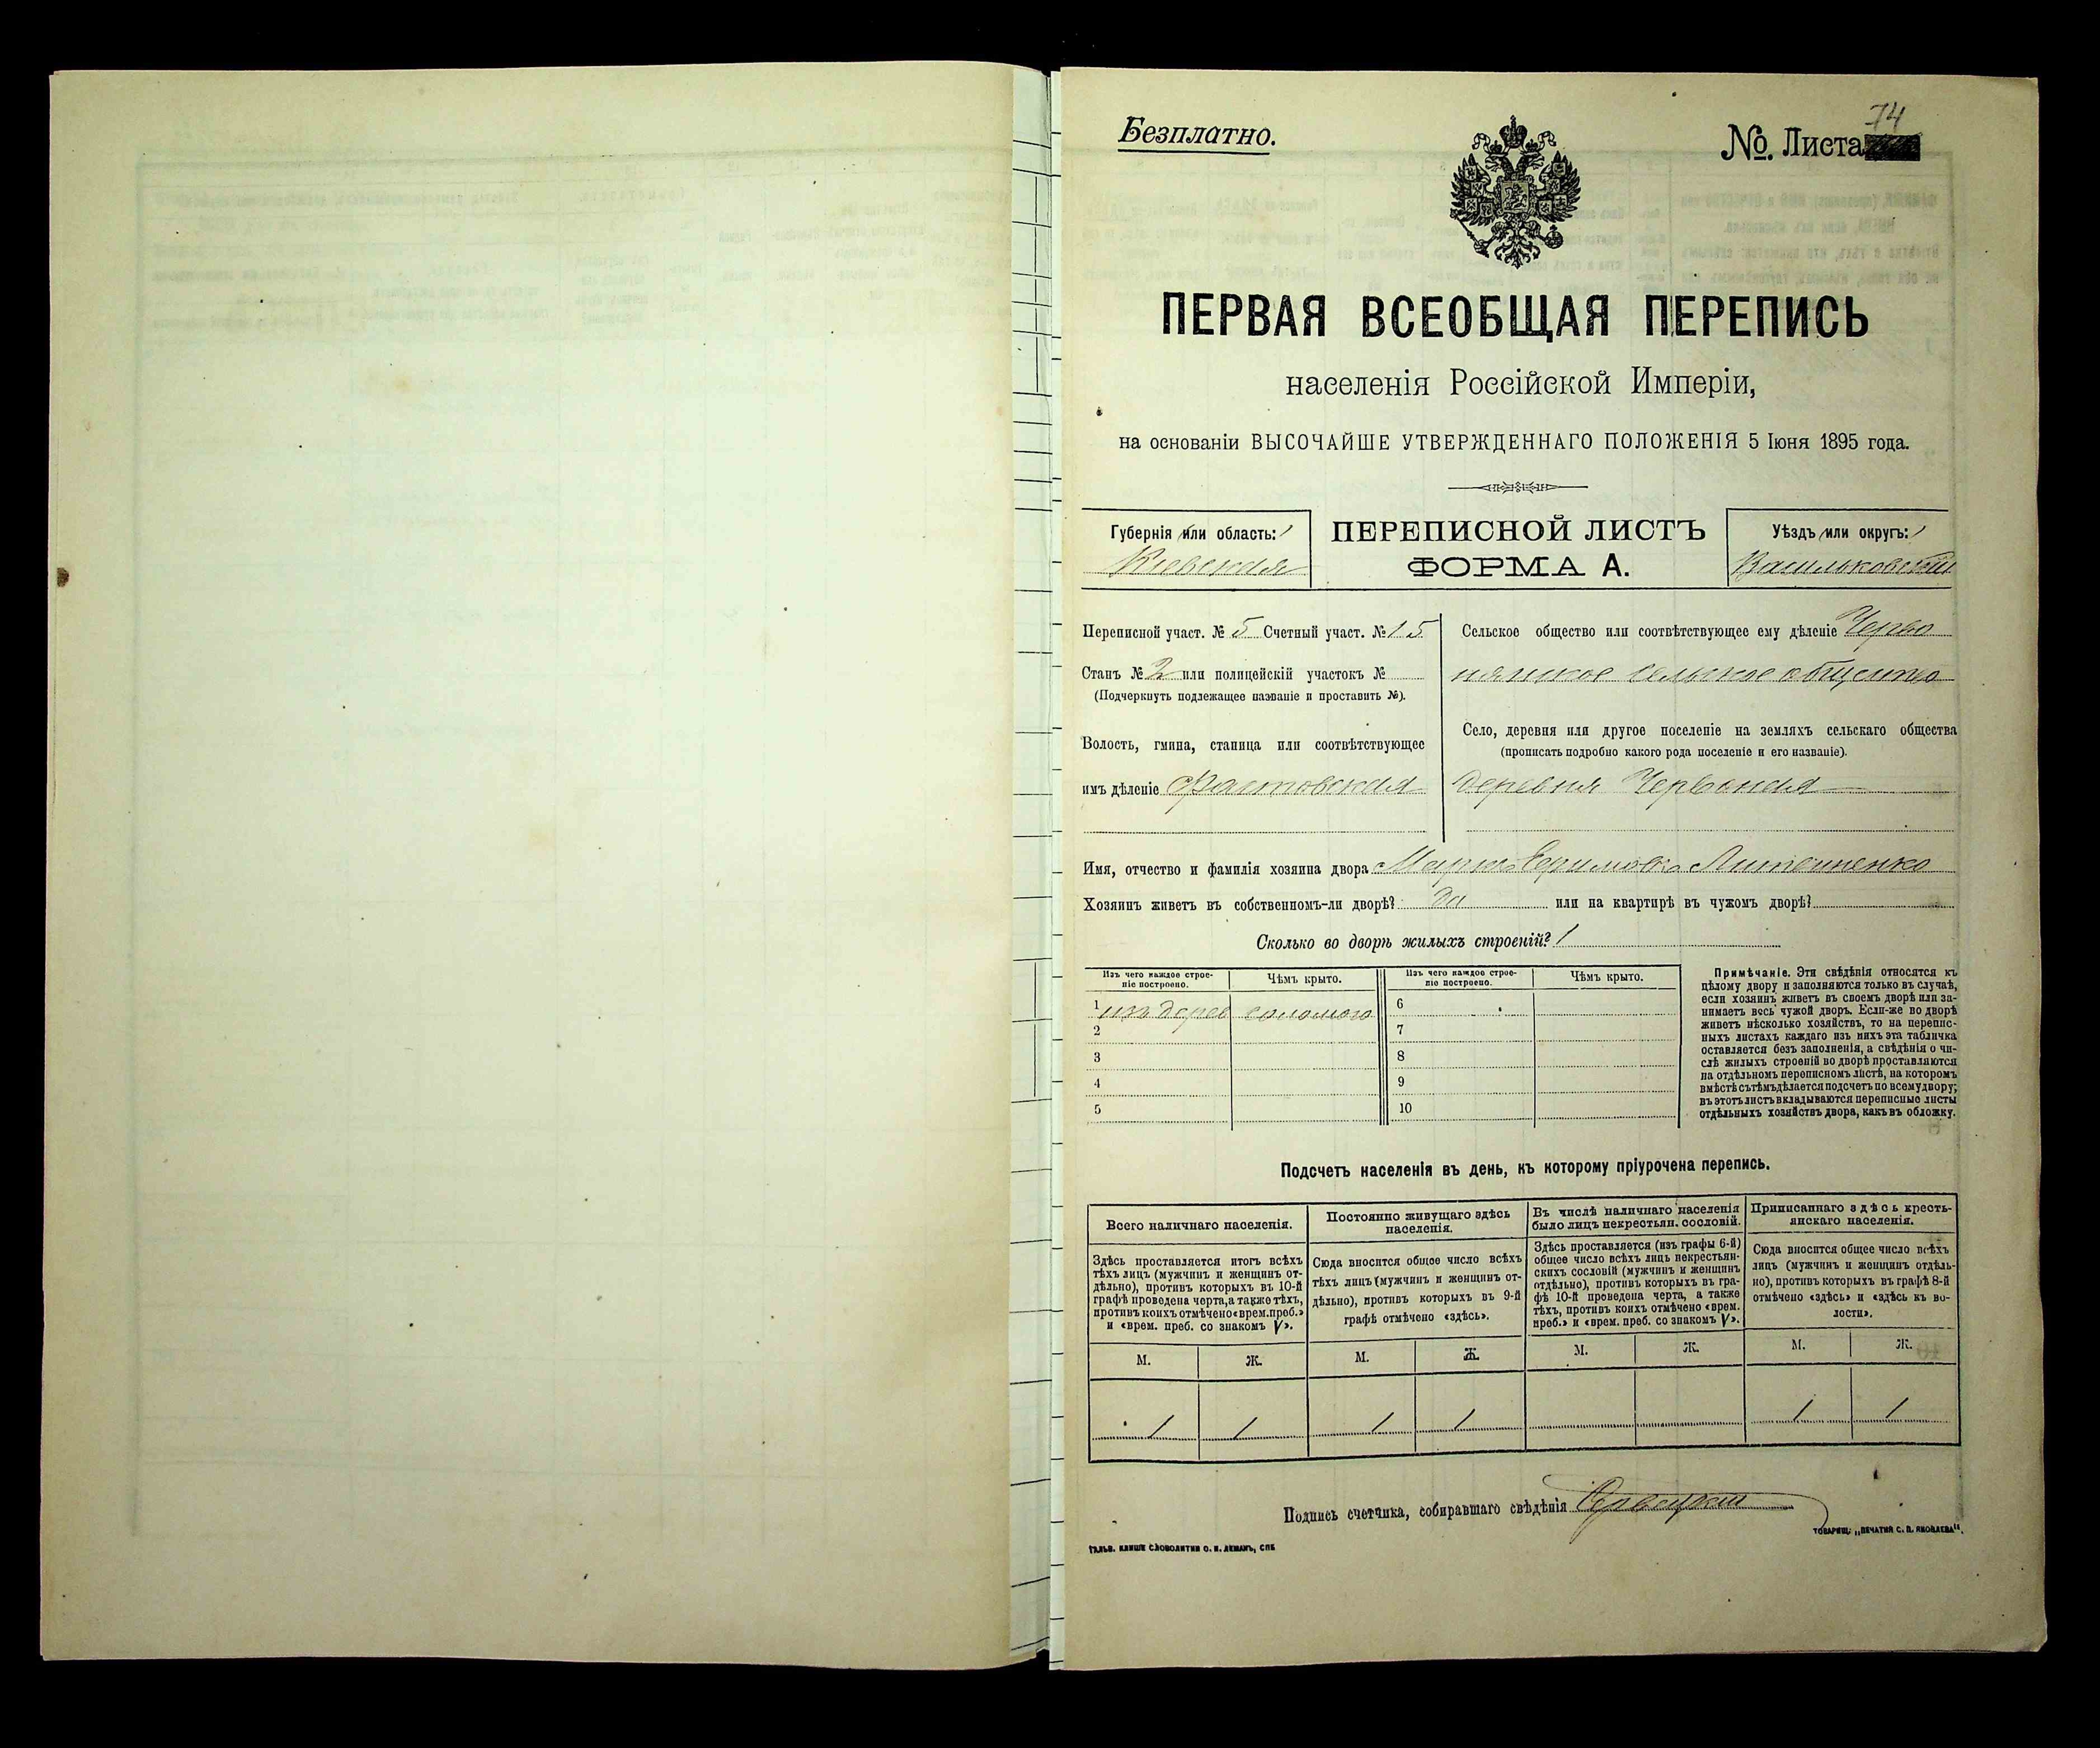 Безплатно.
№. Листа 74
ПЕРВАЯ ВСЕОБЩАЯ ПЕРЕПИСЬ
населенія Россійской Имперіи,
на основаніи ВЫСОЧАЙШЕ УТВЕРЖДЕННАГО ПОЛОЖЕНІЯ 5 Іюня 1895 года.
Губернія или область:
Кіевская
ПЕРЕПИСНОЙ ЛИСТЪ
ФОРМА А.
Уѣздъ или округъ:
Васильковскій
Переписной участ. № 5 Счетный участ. № 15
Станъ № 2 или полицейскій участокъ №
(Подчеркнуть подлежащее названіе и проставить №).
Волость, гмина, станица или соотвѣтствующее
имъ дѣленіе Фастовская
Сельское общество или соотвѣтствующее ему дѣленіе Черво
нянское сельское общество
Село, деревня или другое поселеніе на земляхъ сельскаго общества
(прописать подробно какого рода поселеніе и его названіе).
деревня Червоная
Имя, отчество и фамилія хозяина двора Марія Ефимовна
Хозяинъ живетъ въ собственномъ-ли дворѣ? да или на квартирѣ въ чужомъ дворѣ?
Сколько во дворѣ жилыхъ строеній? 1
Изъ чего каждое строе-
ніе построено.
Чѣмъ крыто.
1 изъ дерев соломою
2
3
4
5
Изъ чего каждое строе-
ніе построено.
Чѣмъ крыто.
6
7
8
9
10
Примѣчаніе. Эти свѣдѣнія относятся къ
цѣлому двору и заполняются только въ случаѣ,
если хозяинъ живетъ въ своемъ дворѣ или за-
нимаетъ весь чужой дворъ. Если-же во дворѣ
живетъ нѣсколько хозяйствъ, то на перепис-
ныхъ листахъ каждаго изъ нихъ эта табличка
оставляется безъ заполненія, а свѣдѣнія о чи-
слѣ жилыхъ строеній во дворѣ проставляются
на отдѣльномъ переписномъ листѣ, на которомъ
вмѣстѣ съ тѣмъ дѣлается подсчетъ по всему двору;
въ этотъ листъ вкладываются переписные листы
отдѣльныхъ хозяйствъ двора, какъ въ обложку.
Подсчетъ населенія въ день, къ которому пріурочена перепись.
Всего наличнаго населенія.
Здѣсь проставляется итогъ всѣхъ
тѣхъ лицъ (мужчинъ и женщинъ от-
дѣльно), противъ которыхъ въ 10-й
графѣ проведена черта, а также тѣхъ,
противъ коихъ отмѣчено «врем. преб.»
и «врем. преб. со знакомъ V».
М. Ж.
1 1
Постоянно живущаго здѣсь
населенія.
Сюда вносится общее число всѣхъ
тѣхъ лицъ (мужчинъ и женщинъ от-
дѣльно), противъ которыхъ въ 9-й
графѣ отмѣчено «здѣсь».
М. Ж.
1 1
Въ числѣ наличнаго населенія
было лицъ некрестьян. сословій.
Здѣсь проставляется (изъ графы 6-й)
общее число всѣхъ лицъ некрестьян-
скихъ сословій (мужчинъ и женщинъ
отдѣльно), противъ которыхъ въ гра-
фѣ 10-й проведена черта, а также
тѣхъ, противъ коихъ отмѣчено «врем.
преб.» и «врем. преб. со знакомъ V».
М. Ж.
Приписаннаго здѣсь кресть-
янскаго населенія.
Сюда вносится общее число всѣхъ
лицъ (мужчинъ и женщинъ отдѣль-
но), противъ которыхъ въ графѣ 8-й
отмѣчено «здѣсь» и «здѣсь къ во-
лости».
М. Ж.
1 1
Подпись счетчика, собиравшаго свѣдѣнія
ГАЛЬВ. КЛИШЕ СЛОВОЛИТНИ О. И. ЛЕМАНЪ, СПБ
ТОВАРИЩ. „ПЕЧАТНЯ С. П. ЯКОВЛЕВА“.